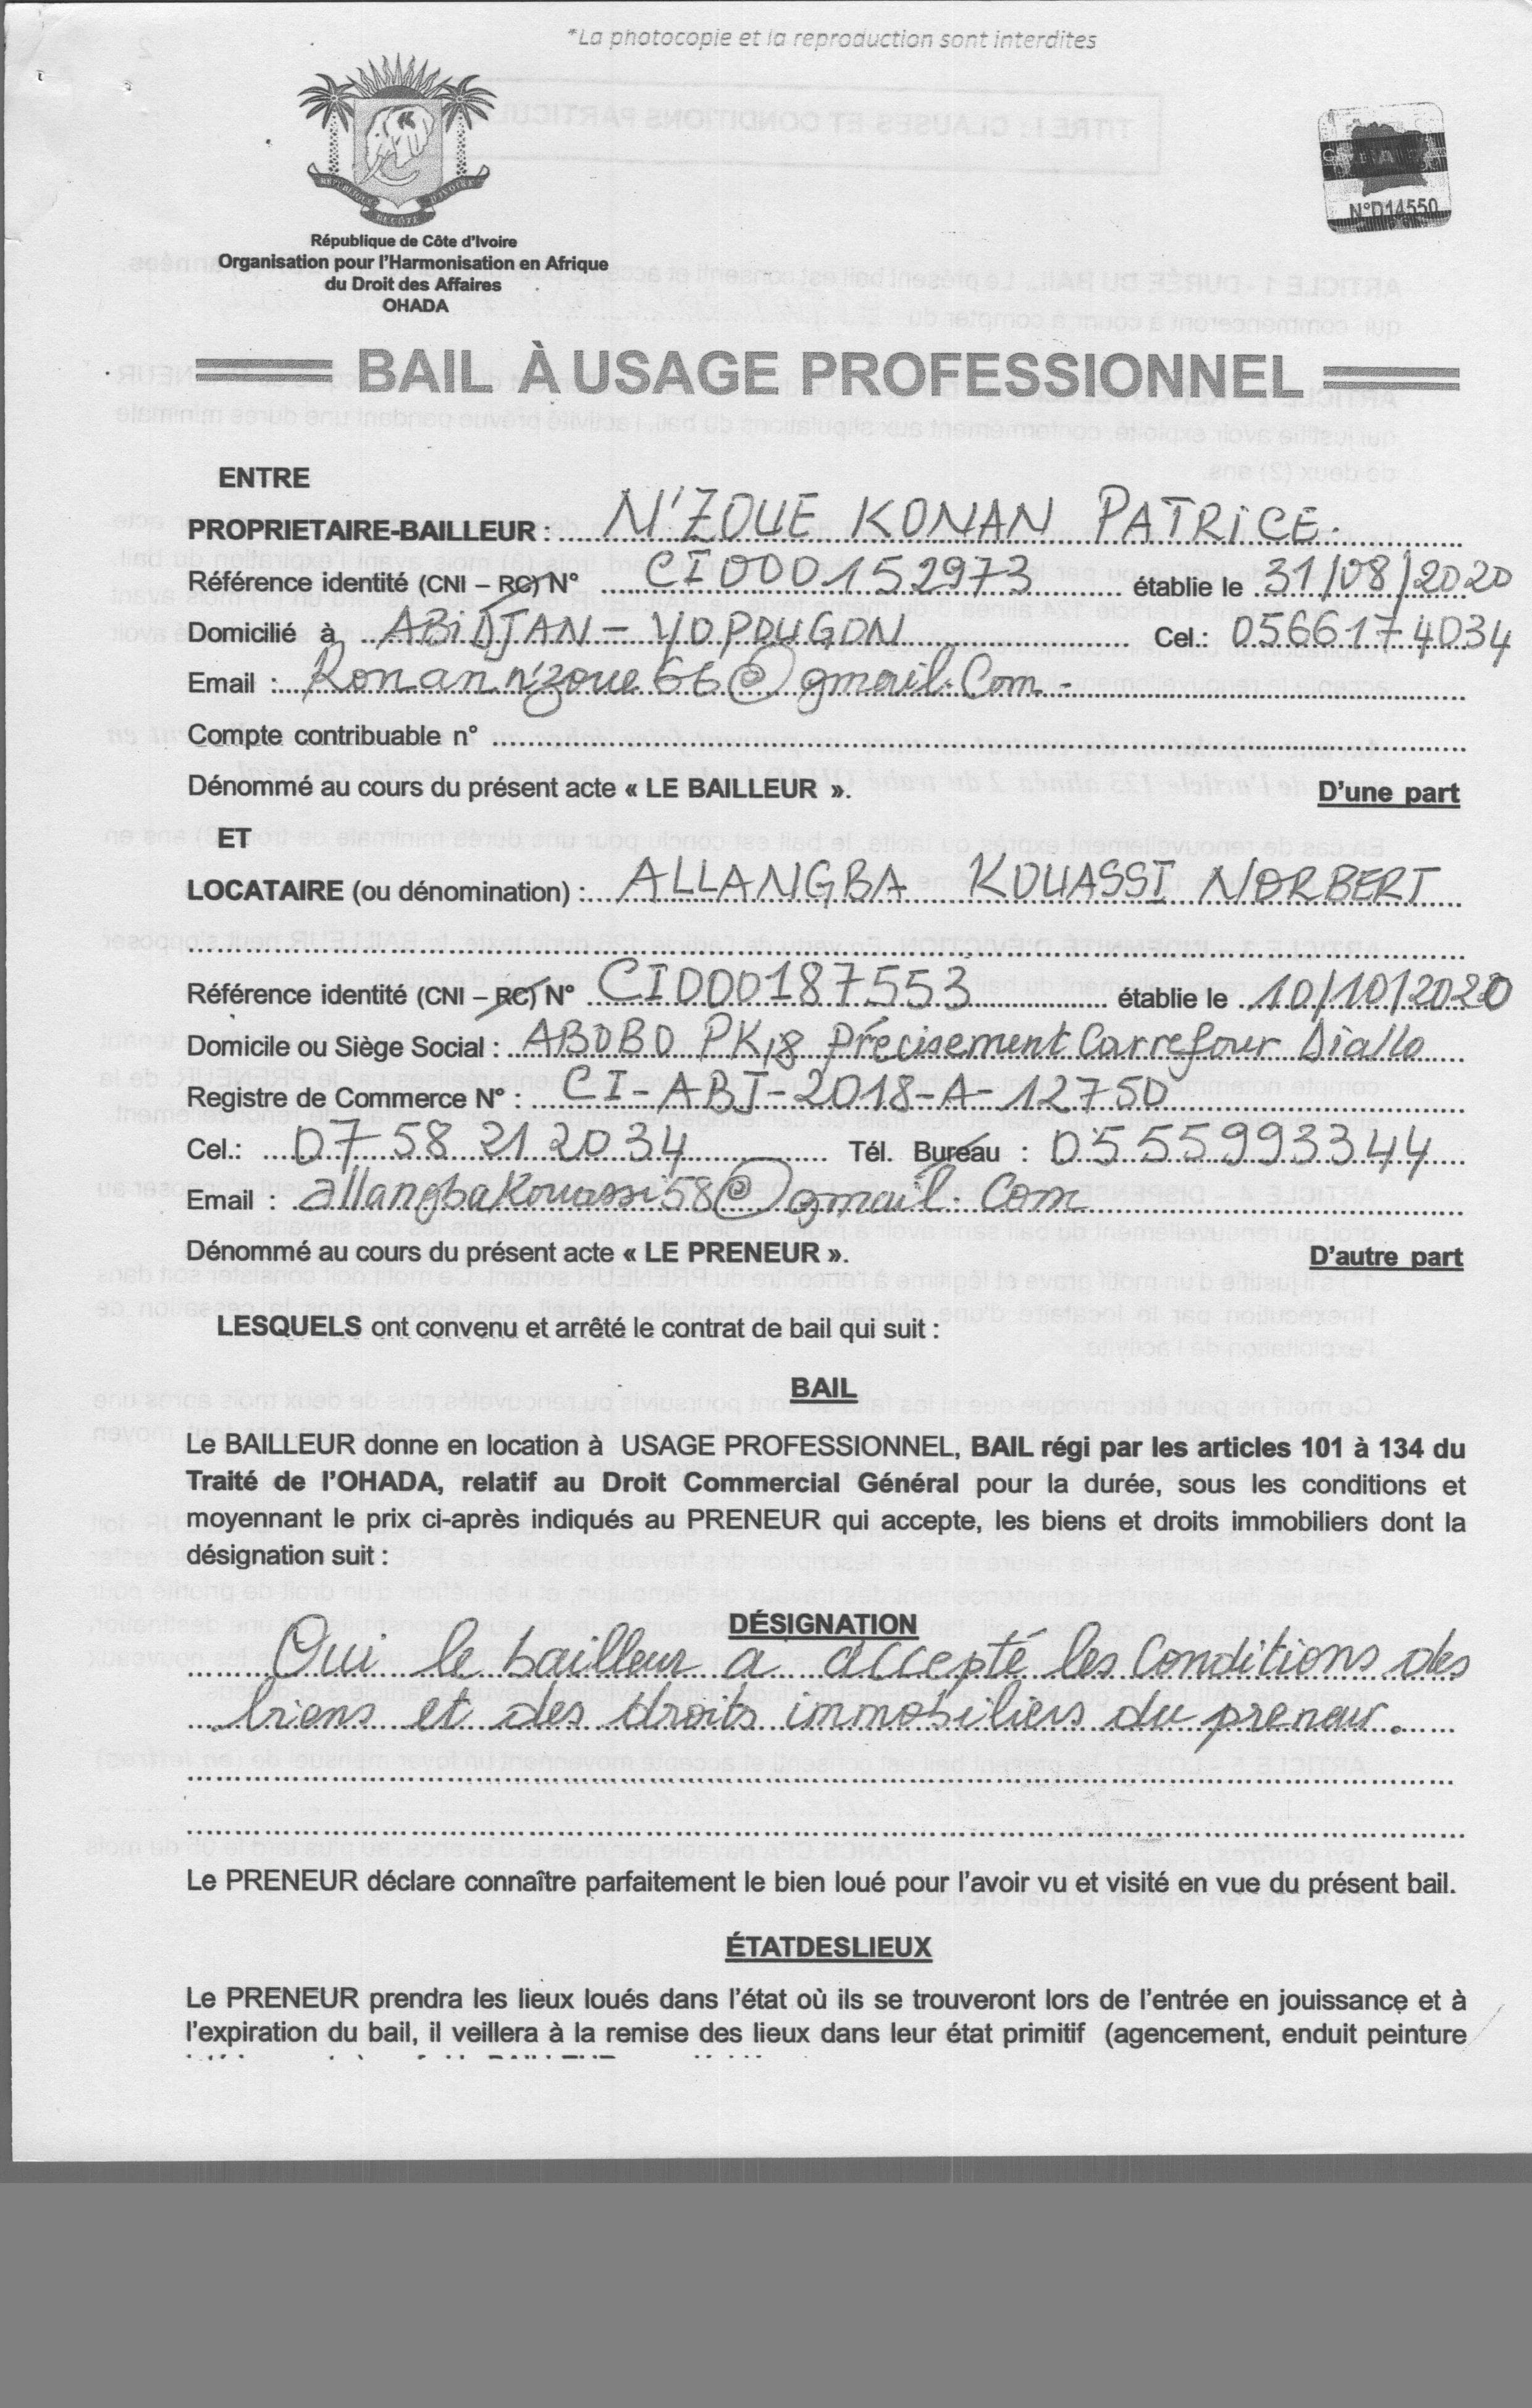 *La photocopie et la reproduction sont interdites
REPUBLIQUE DE CÔTE D'IVOIRE
N°D14550
République de Côte d'Ivoire
Organisation pour l'Harmonisation en Afrique
du Droit des Affaires
OHADA
BAIL À USAGE PROFESSIONNEL
ENTRE
PROPRIETAIRE-BAILLEUR : N'ZOUE KONAN PATRICE.
Référence identité (CNI – RC) N° CI000152973 établie le 31/08/2020
Domicilié à ABIDJAN - YOPOUGON Cel.: 0566174034
Email : Konan n'zoue 66@gmail.Com -
Compte contribuable n°
Dénommé au cours du présent acte « LE BAILLEUR ». D'une part
ET
LOCATAIRE (ou dénomination) : ALLANGBA KOUASSI NORBERT
Référence identité (CNI – RC) N° CI000187553 établie le 10/10/2020
Domicile ou Siège Social : ABOBO PK18 Précisement Carrefour Diallo
Registre de Commerce N° : CI-ABJ-2018-A-12750
Cel.: 07 58 21 20 34 Tél. Bureau : 0555993344
Email : allangbaKouassi58@gmail.Com
Dénommé au cours du présent acte « LE PRENEUR ». D'autre part
LESQUELS ont convenu et arrêté le contrat de bail qui suit :
BAIL
Le BAILLEUR donne en location à USAGE PROFESSIONNEL, BAIL régi par les articles 101 à 134 du
Traité de l'OHADA, relatif au Droit Commercial Général pour la durée, sous les conditions et
moyennant le prix ci-après indiqués au PRENEUR qui accepte, les biens et droits immobiliers dont la
désignation suit :
DÉSIGNATION
Oui le bailleur a accepté les Conditions des
biens et des droits immobiliers du preneur.
Le PRENEUR déclare connaître parfaitement le bien loué pour l'avoir vu et visité en vue du présent bail.
ÉTATDESLIEUX
Le PRENEUR prendra les lieux loués dans l'état où ils se trouveront lors de l'entrée en jouissance et à
l'expiration du bail, il veillera à la remise des lieux dans leur état primitif (agencement, enduit peinture